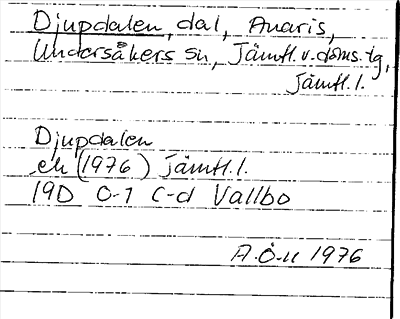 Djupdalen, dal, Anaris,
Undersåkers sn, Jämtl. v. doms. tg,
Jämtl. l.
Djupdalen
ek (1976) Jämtl. l.
19D 0-1 c-d Vallbo
A. Ö-n 1976